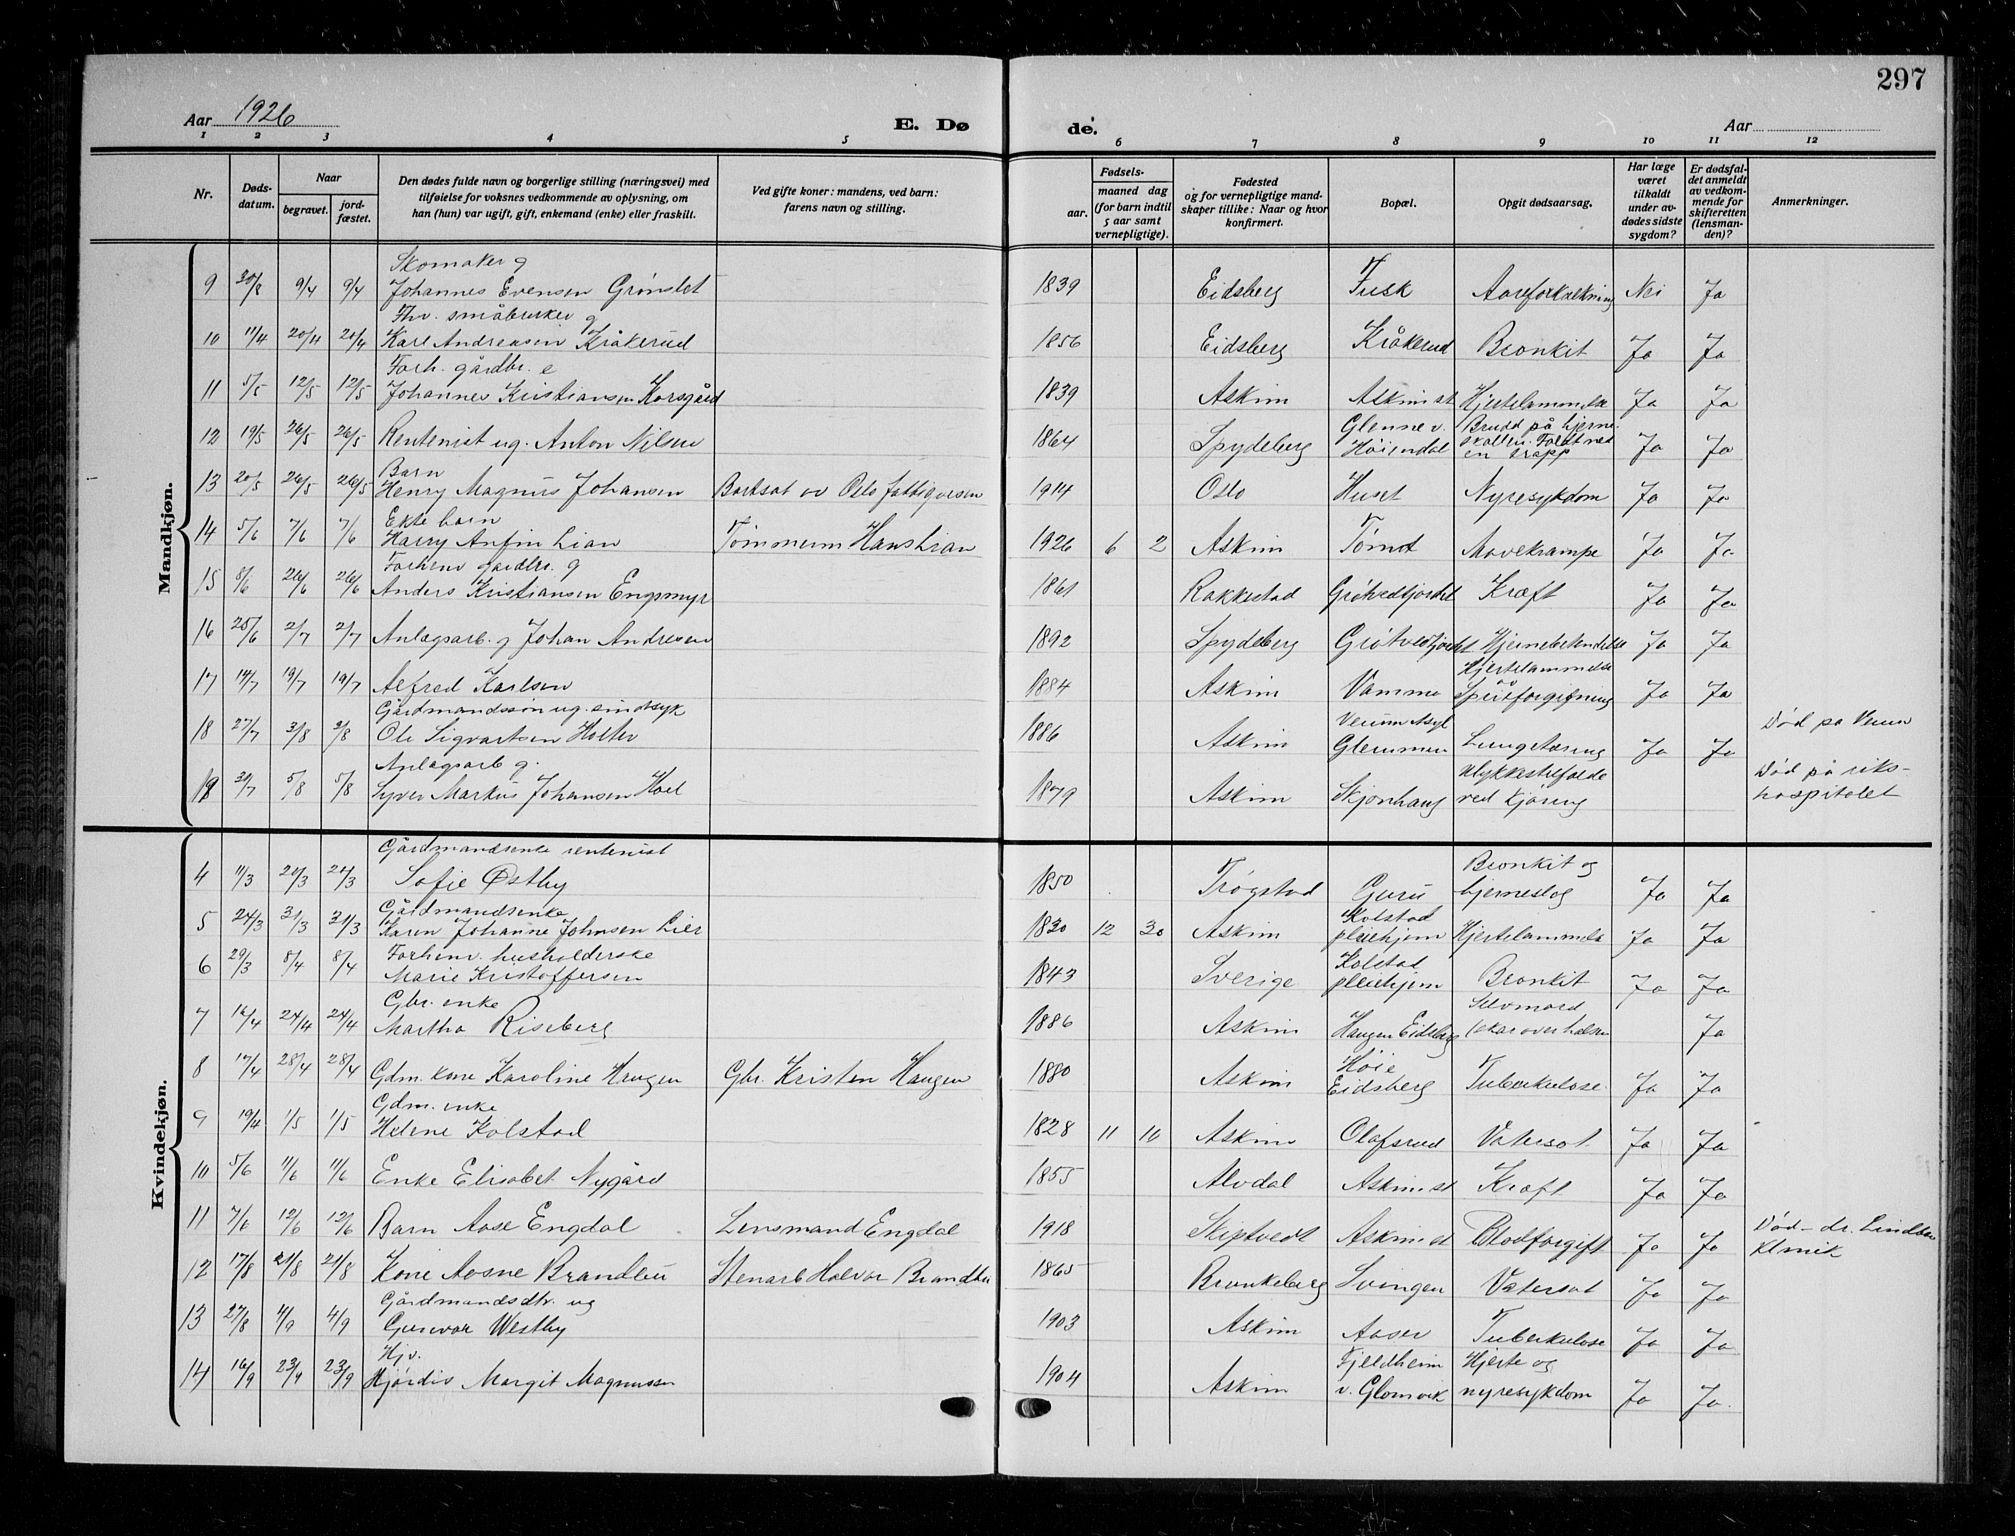 297
Aar 1926
E. Dø
de.
Aar
1 2 3 4 5 6 7 8 9 10 11 12
Nr.
Døds-
datum.
Naar
begravet.
jord-
fæstet.
Den dødes fulde navn og borgerlige stilling (næringsvei) med
tilføielse for voksnes vedkommende av oplysning, om
han (hun) var ugift, gift, enkemand (enke) eller fraskilt.
Ved gifte koner: mandens, ved barn:
farens navn og stilling.
Fødsels-
aar.
maaned dag
(for barn indtil
5 aar samt
vernepligtige).
Fødested
og for vernepligtige mand-
skaper tillike: Naar og hvor
konfirmert.
Bopæl.
Opgit dødsaarsag.
Har læge
været
tilkaldt
under av-
dødes sidste
sygdom?
Er dødsfal-
det anmeldt
av vedkom-
mende for
skifteretten
(lensman-
den)?
Anmerkninger.
Mandkjøn.
Skomaker g
9 30/3 9/4 9/4 Johannes Evensen Grønslet 1839 Eidsberg Tusk Aareforkalkning Nei Ja
Fhv. småbruker g
10 11/4 20/4 20/4 Karl Andreasen Kråkerud 1856 Eidsberg Kråkerud Bronkit Ja Ja
Forh. gårdbr. e
11 5/5 12/5 12/5 Johannes Kristiansen Korsgård 1839 Askim Askim st Hjertelammelse Ja Ja
12 19/5 26/5 26/5 Rentenist ug. Anton Nilsen 1864 Spydeberg Glenne v. Høiendal Brudd på hjerne-
skallen. Faldt ned
en trapp Ja Ja
Barn
13 20/5 26/5 26/5 Henry Magnus Johansen Bortsat av Oslo fattigvesen 1914 Oslo Huset Nyresykdom Ja Ja
Ekte barn
14 5/6 7/6 7/6 Harry Anfin Lian Tømmerm Hans Lian 1926 6 2 Askim Tømt Mavekrampe Ja Ja
Forhenv gårdbr. g
15 8/6 26/6 26/6 Anders Kristiansen Engsmyr 1861 Rakkestad Grøtvedtjordet Kræft Ja Ja
16 25/6 2/7 2/7 Anlægsarb. g Johan Andresen 1892 Spydeberg Grøtvedtjordet Hjernebetendelse Ja Ja
17 14/7 19/7 19/7 Alfred Karlsen 1884 Askim Vamma Hjertelammelse
av
Spritforgiftning Ja Ja
Gårdmandssøn ug. sindssyk
18 27/7 3/8 3/8 Ole Sigvartsen Holter 1886 Askim Veum Asyl
Glemmen Lungetæring Ja Ja Død på Veum
Anlægsarb g.
19 30/7 5/8 5/8 Syver Markus Johansen Hoel 1879 Askim Skjønhaug Ulykkestilfælde
ved kjøring Død på riks-
hospitalet
Kvindekjøn.
Gårdmandsenke rentenist
4 11/3 20/3 20/3 Sofie Østby 1850 Trøgstad Guru Bronkit og
hjerneslag Ja Ja
Gårdmandsenke
5 24/3 31/3 31/3 Karen Johanne Johnsen Lier 1830 12 30 Askim Kolstad
pleiehjem Hjertelammelse Ja Ja
Forhenv. husholderske
6 29/3 8/4 8/4 Marie Kristoffersen 1843 Sverige Kolstad
pleiehjem Bronkit Ja Ja
Gbr. enke
7 16/4 24/4 24/4 Martha Riseberg 1886 Askim Haugen Eidsberg Selvmord
skar over halsen Ja
8 17/4 28/4 28/4 Gdm. kone Karoline Haugen Gbr. Kristen Haugen 1880 Askim Høie
Eidsberg Tuberkulose. Ja Ja
Gdm. enke
9 19/4 1/5 1/5 Helene Kolstad 1828 11 10 Askim Olafsrud Vatersot. Ja Ja
10 5/6 11/6 11/6 Enke Elisabet Nygård 1855 Alvdal Askim st Kræft Ja Ja
11 7/6 12/6 12/6 Barn Aase Engdal Lensmand Engdal 1918 Skiptvedt Askim st Blodforgift Ja Ja Død – dr.
klinik
12 17/8 21/8 21/8 Kone Aasne Brandlu Stenarb Halvor Brandlu 1865 Brunkeberg Svingen Vatersot Ja Ja
Gårdmandsdtr. ug
13 27/8 4/9 4/9 Gunvor Westby 1903 Askim Aaser Tuberkulose Ja Ja
Hjv.
14 16/9 23/9 23/9 Hjørdis Margit Magnussen 1904 Askim Fjeldheim
v. Glomvik Hjerte og
nyresykdom Ja Ja.